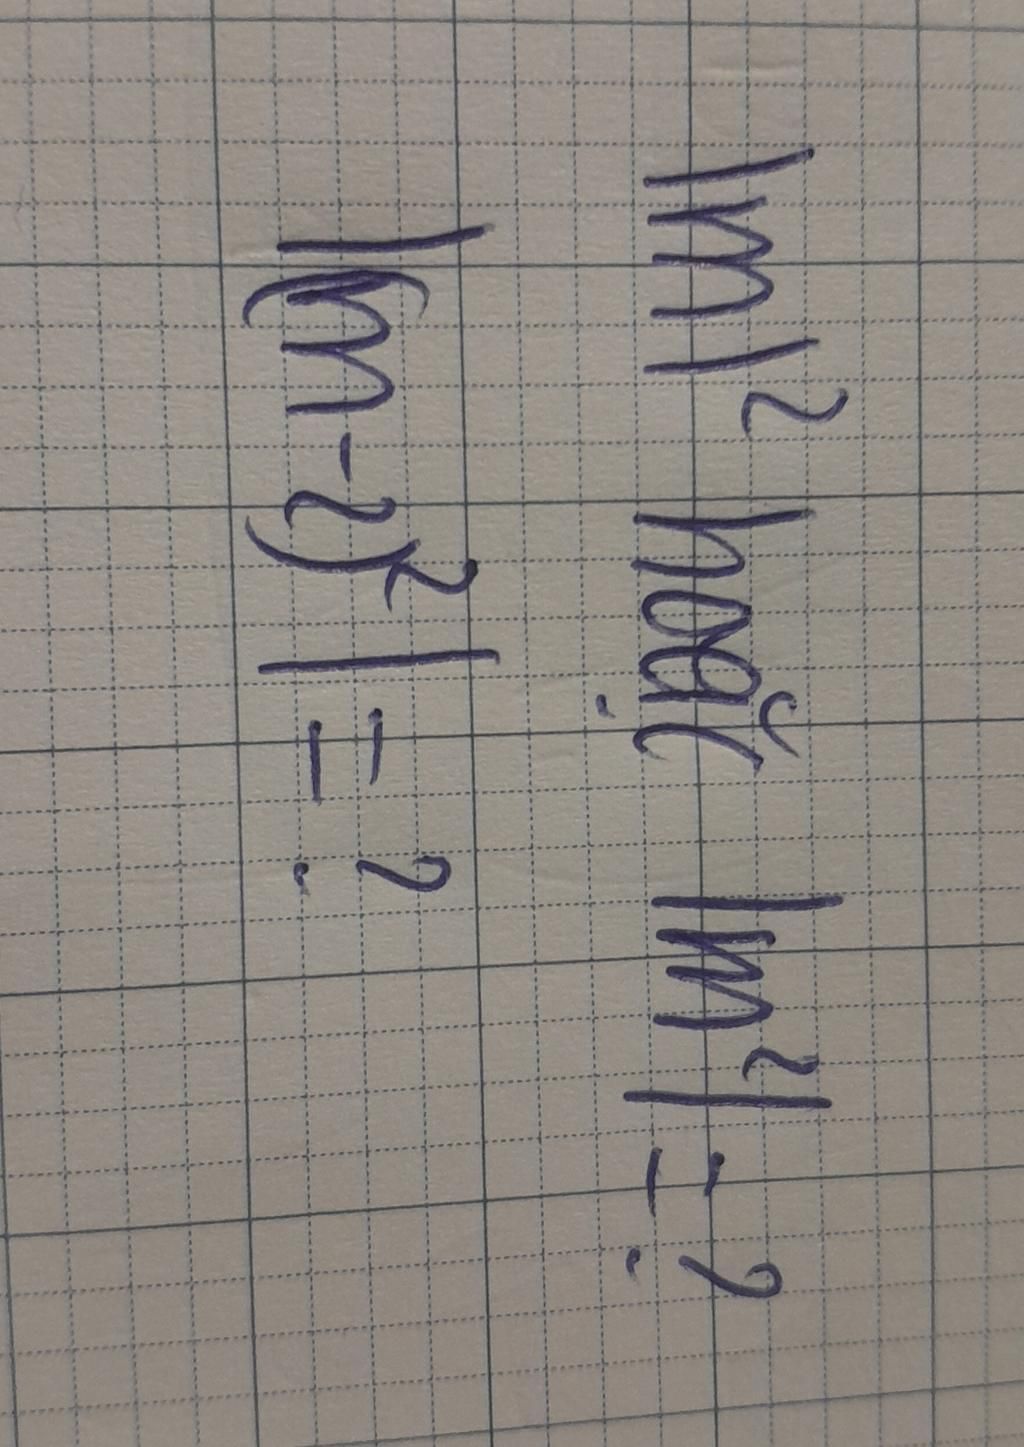 |m|² hoặc |m²| = ?
|(m-2)²| = ?